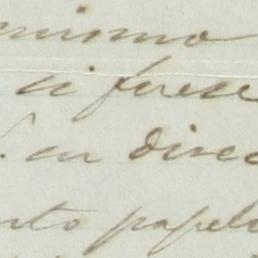 mismo
si fuese
en direc
nto papel